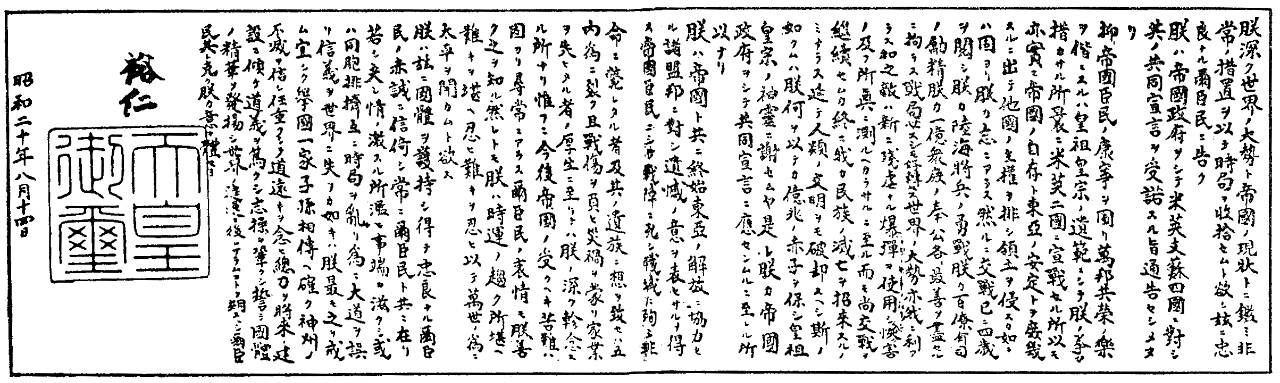 朕深ク世界ノ大勢ト帝國ノ現狀トニ鑑ミ非
常ノ措置ヲ以テ時局ヲ收拾セムト欲シ茲ニ忠
良ナル爾臣民ニ告ク
朕ハ帝國政府ヲシテ米英支蘇四國ニ對シ
其ノ共同宣言ヲ受諾スル旨通告セシメタ
リ
抑帝國臣民ノ康寧ヲ圖リ萬邦共榮ノ樂
ヲ偕ニスルハ皇祖皇宗ノ遺範ニシテ朕ノ拳々
措カサル所曩ニ米英二國ニ宣戰セル所以モ
亦實ニ帝國ノ自存ト東亞ノ安定トヲ庶幾
スルニ出テ他國ノ主權ヲ排シ領土ヲ侵スカ如キ
ハ固ヨリ朕カ志ニアラス然ルニ交戰已ニ四歲
ヲ閱シ朕カ陸海將兵ノ勇戰朕カ百僚有司
ノ勵精朕カ一億衆庶ノ奉公各最善ヲ盡セル
ニ拘ラス戰局必スシモ好轉セス世界ノ大勢亦我ニ利ア
ラス加之敵ハ新ニ殘虐ナル爆彈ヲ使用シ慘害
ノ及フ所眞ニ測ルヘカラサルニ至ル而モ尚交戰ヲ
繼續セムカ終ニ我カ民族ノ滅亡ヲ招來スルノ
ミナラス延テ人類ノ文明ヲモ破却スヘシ斯ノ
如クムハ朕何ヲ以テカ億兆ノ赤子ヲ保シ皇祖
皇宗ノ神靈ニ謝セムヤ是レ朕カ帝國
政府ヲシテ共同宣言ニ應セシムルニ至レル所
以ナリ
朕ハ帝國ト共ニ終始東亞ノ解放ニ協力セ
ル諸盟邦ニ對シ遺憾ノ意ヲ表セサルヲ得
ス帝國臣民ニシテ戰陣ニ死シ職域ニ殉シ非
命ニ斃レタル者及其ノ遺族ニ想ヲ致セハ五
內為ニ裂ク且戰傷ヲ負ヒ災禍ヲ蒙リ家業
ヲ失ヒタル者ノ厚生ニ至リテハ朕ノ深ク軫念ス
ル所ナリ惟フニ今後帝國ノ受クヘキ苦難ハ
固ヨリ尋常ニアラス爾臣民ノ衷情モ朕善
ク之ヲ知ル然レトモ朕ハ時運ノ趨ク所堪ヘ
難キヲ堪ヘ忍ヒ難キヲ忍ヒ以テ萬世ノ為ニ
太平ヲ開カムト欲ス
朕ハ茲ニ國體ヲ護持シ得テ忠良ナル爾臣
民ノ赤誠ニ信倚シ常ニ爾臣民ト共ニ在リ
若シ夫レ情ノ激スル所濫ニ事端ヲ滋クシ或
ハ同胞排擠互ニ時局ヲ亂リ為ニ大道ヲ誤
リ信義ヲ世界ニ失フカ如キハ朕最モ之ヲ戒
ム宜シク擧國一家子孫相傳ヘ確ク神州ノ
不滅ヲ信シ任重クシテ道遠キヲ念ヒ總力ヲ將來ノ建
設ニ傾ケ道義ヲ篤クシ志操ヲ鞏クシ誓テ國體
ノ精華ヲ發揚シ世界ノ進運ニ後レサラムコトヲ期スヘシ爾臣
民其レ克ク朕カ意ヲ體セヨ
裕仁
天皇
御璽
昭和二十年八月十四日